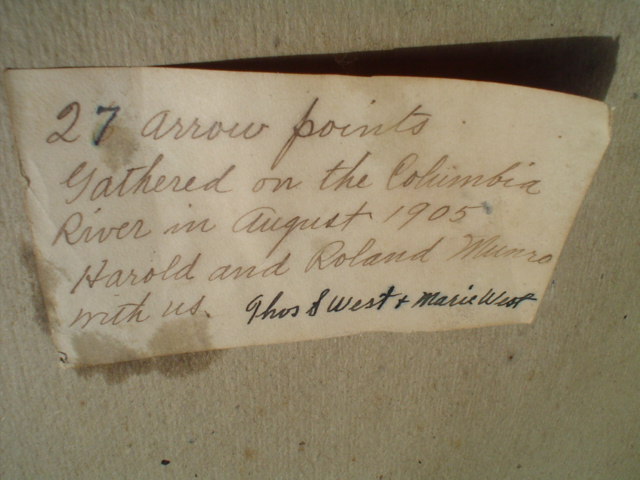 27 arrow points
Gathered on the Columbia
River in August 1905
Harold and Roland Munro
with us. Thos S West + Marie West